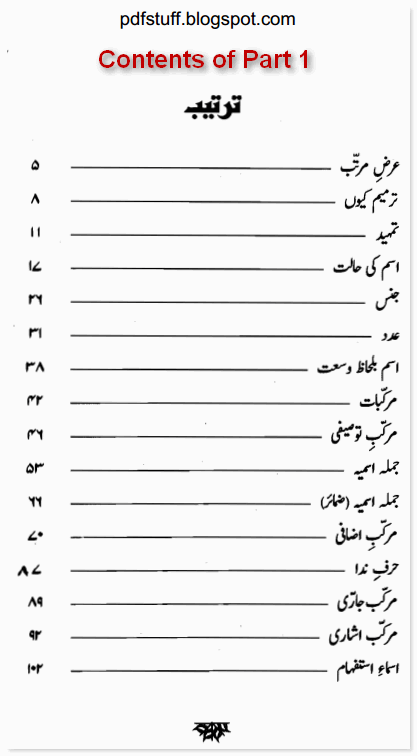 pdfstuff.blogspot.com
Contents of Part 1
ترتیب
عرضِ مرتّب ۵
ترمیم کیوں ۸
تمہید ۱۱
اسم کی حالت ۱۷
جنس ۲۶
عدد ۳۱
اسم بلحاظ وسعت ۳۸
مرکبات ۴۲
مرکّبِ توصیفی ۴۶
جملہ اسمیہ ۵۳
جملہ اسمیہ (ضمائر) ۶۶
مرکّبِ اضافی ۷۰
حرفِ ندا ۸۷
مرکّب جارّی ۸۹
مرکّب اشاری ۹۲
اسماءِ استفہام ۱۰۲